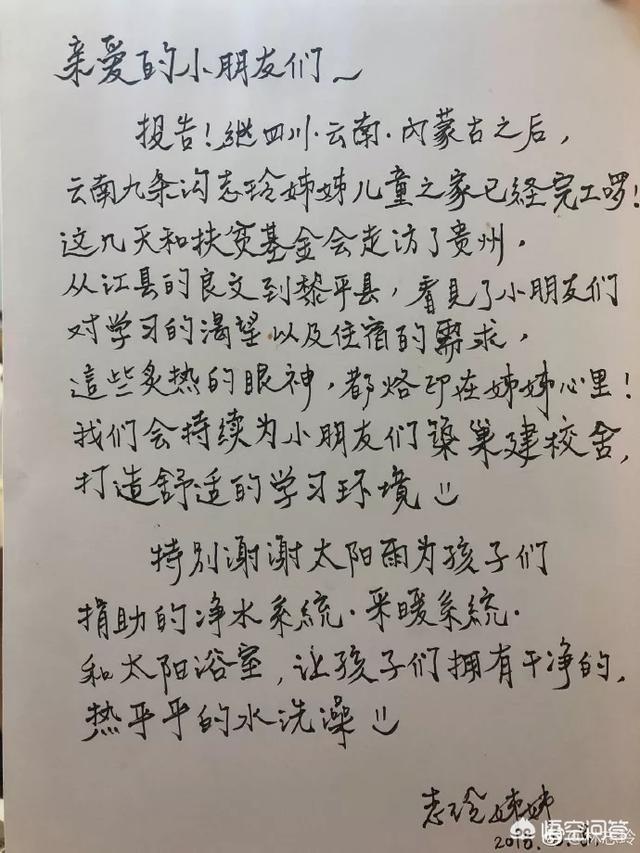 亲爱的小朋友们~
报告！继四川·云南·内蒙古之后，
云南九条沟志玲姊姊儿童之家已经完工啰！
这几天和扶贫基金会走访了贵州，
从江县的良文到黎平县，看見了小朋友们
对学习的渴望以及住宿的需求，
這些炙热的眼神，都烙印在姊姊心里！
我们会持续为小朋友们築巢建校舍，
打造舒适的学习环境
特别谢谢太阳雨为孩子们
捐助的净水系统·采暖系统·
和太阳浴室，让孩子们拥有干净的，
热乎乎的水洗澡
志玲姊姊
悟空问答